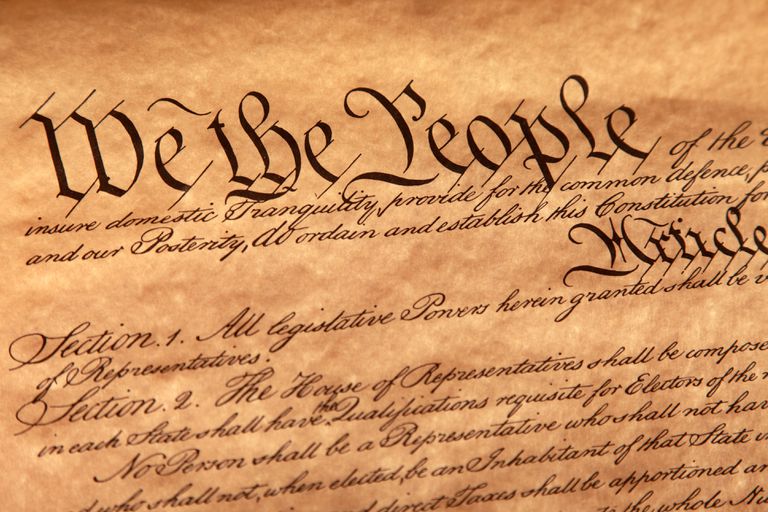 We the People of the
insure domestic Tranquility, provide for the common defence,
and our Posterity, do ordain and establish this Constitution for
Article
Section. 1. All legislative Powers herein granted shall be
of Representatives.
Section. 2. The House of Representatives shall be compose
in each State shall have the Qualifications requisite for Electors of the
No Person shall be a Representative who shall not hav
who shall not, when elected, be an Inhabitant of that State
direct Taxes shall be apportioned
to the whole Nu